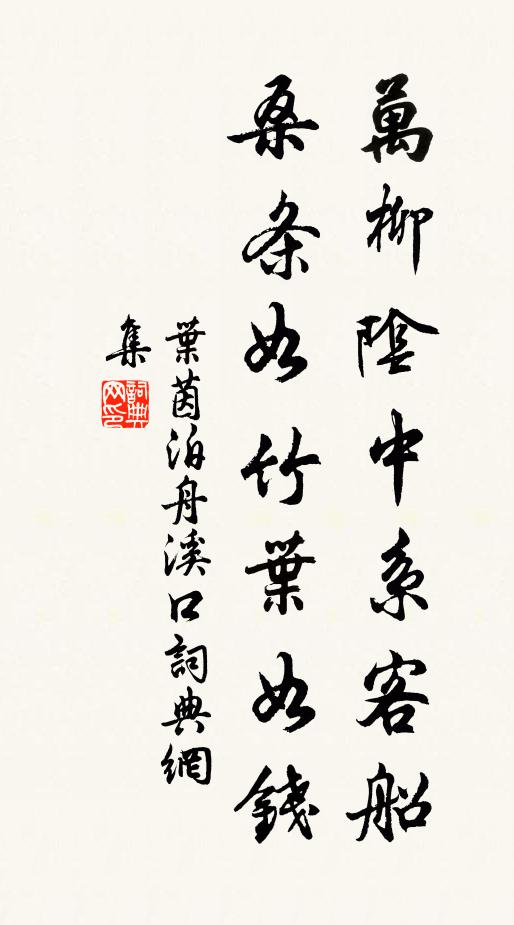 萬柳陰中系客船
桑条如竹葉如錢
葉茵泊舟溪口詞典網
集
詞典网印